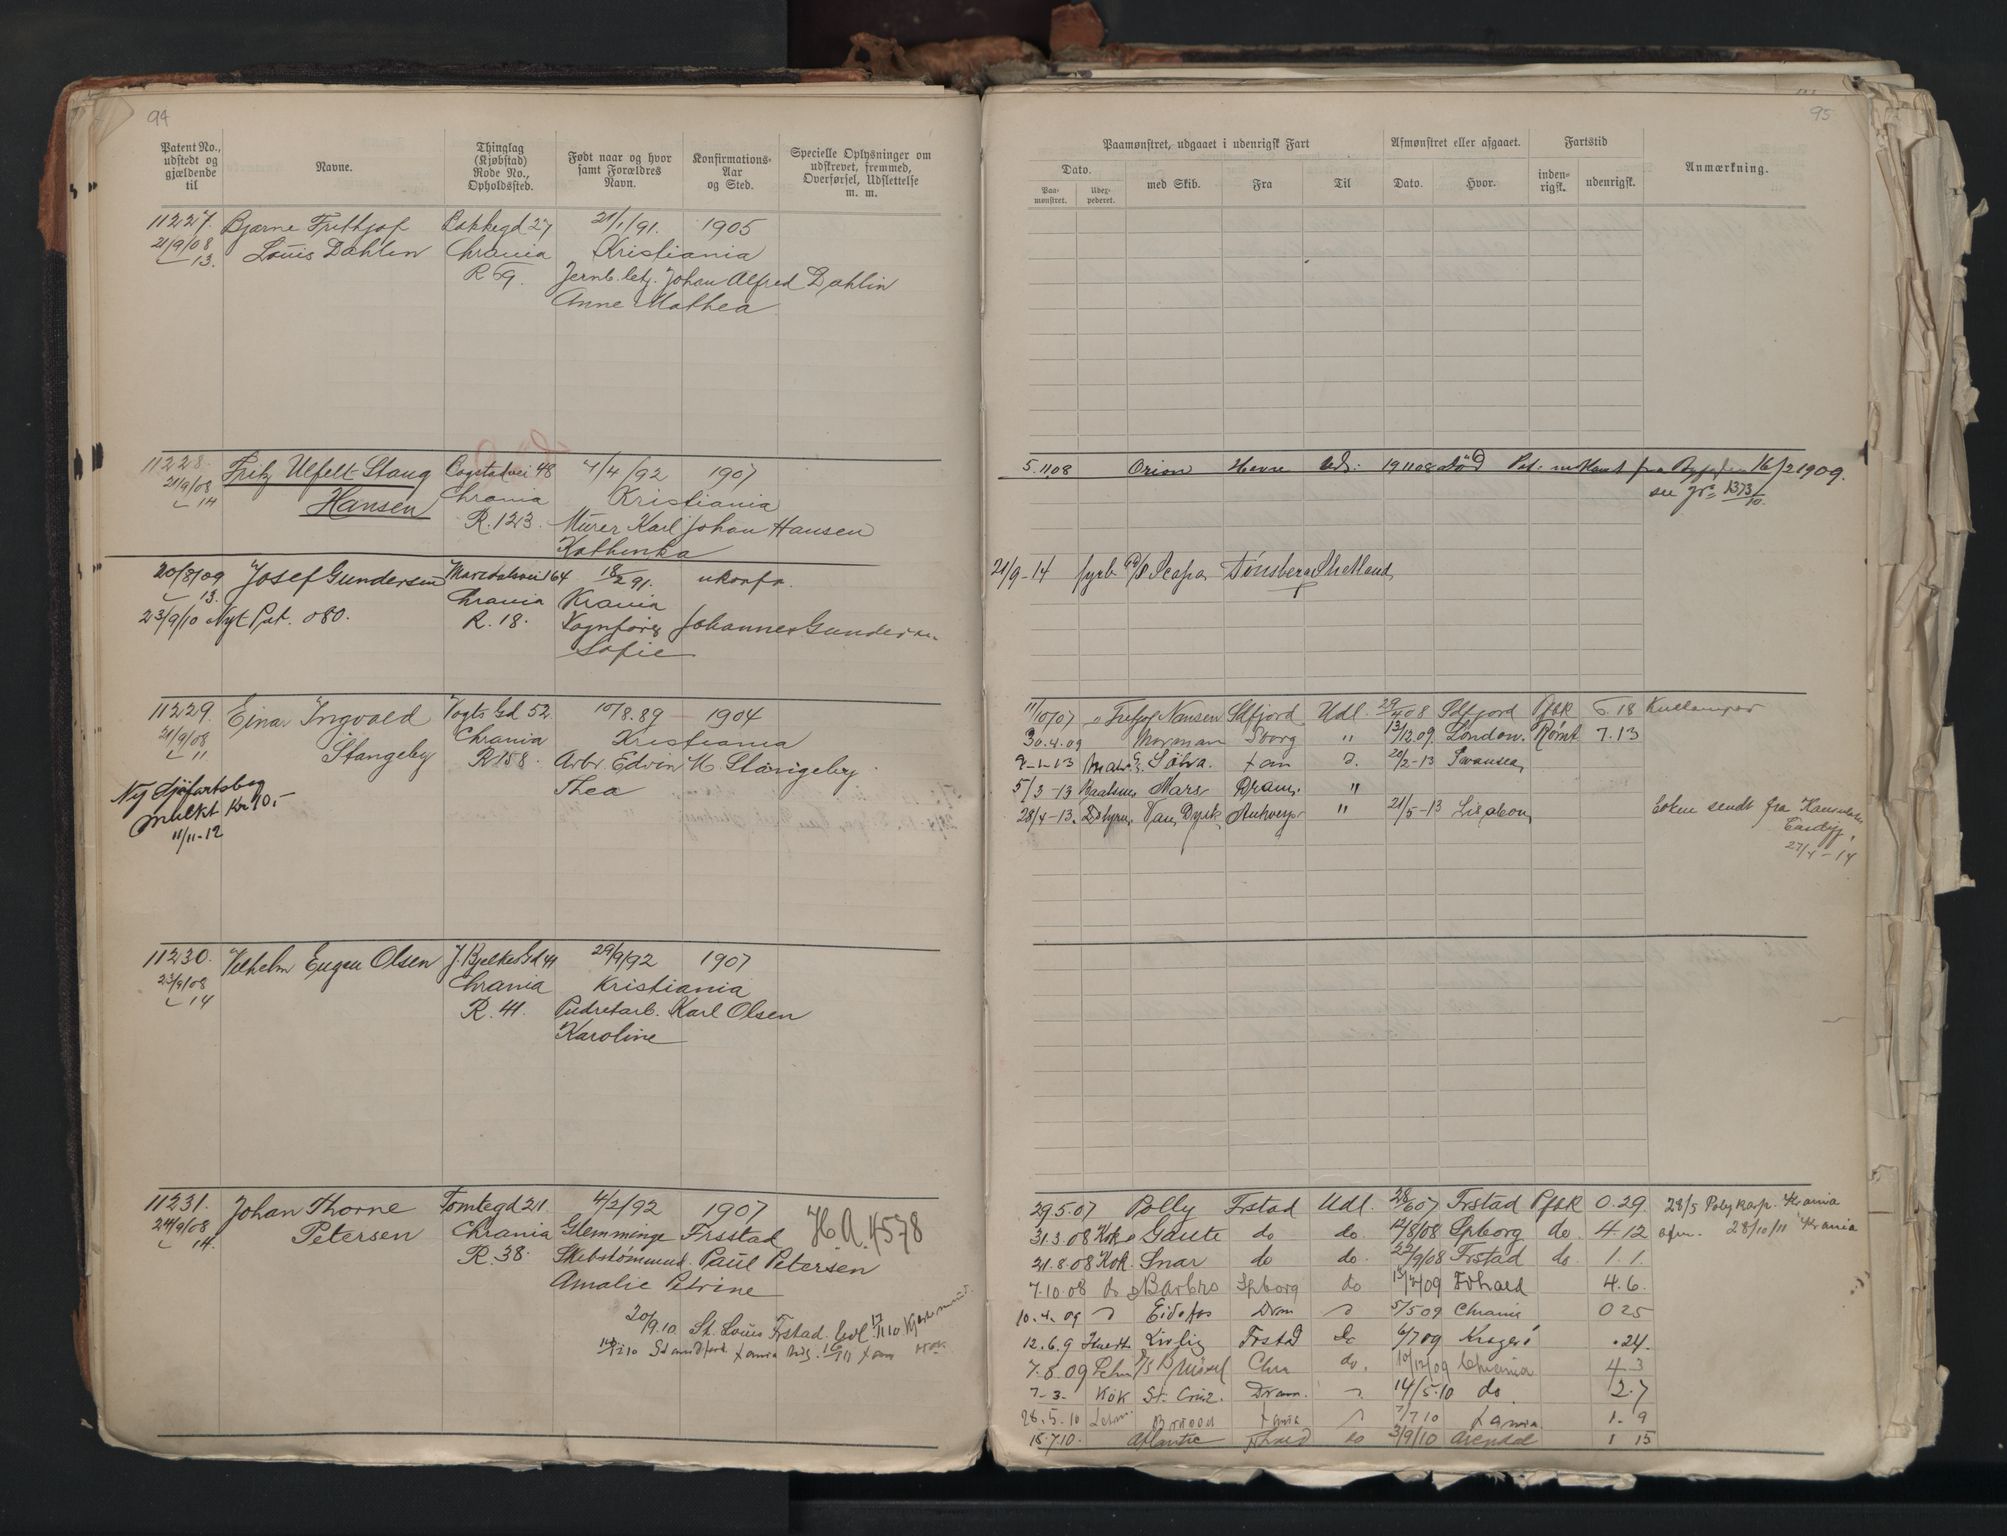 94
Patent No., udstedt og gjældende til
Navne.
Thinglag (Kjøbstad) Rode No., Opholdssted.
Født naar og hvor samt Forældres Navn.
Konfirmations-Aar og Sted.
Specielle Oplysninger om udskrevet, fremmed, Overførsel, Udslettelse m. m.
11227. Bjarne Frithjof Bakkegd 27 21/1/91. 1905
21/9/08 Louis Dahlin Chrania Kristiania
13. R 69. Jernb.betj. Johan Alfred Dahlin
Anne Mathea
11228. Fritz Ulfelt-Stang 48 4/92 1907
21/9/08 Hansen Chrania Kristiania
14 R. 123. Murer Karl Johan Hansen
Kathinka
20/8/09 Josef Gundersen Maridalsvei 164 18/2 91. ukonfr.
13. Chrania Krania
23/9/10 Nyt Pat. 080. R. 18. Vognfører Johannes Gundersen
Sofie
11229. Einar Ingvald Vogts Gd 52 10/8.89 1904
21/9/08 Stangeby Chrania Kristiania
11 R 158. Arb. Edvin M. Stangeby
Thea
Ny Sjøfartsbog
Mulkt Kr 10.-
11/11-12
11230. Vilhelm Eugen Olsen J. Bjelkes Gd 41 29/9/92 1907
23/9/08 Chrania Kristiania
14 R. 41. Pudretarb. Karl Olsen
Karoline
11231. Johan Thorne Tomtegd 21. 4/2/92 1907
24/9/08 Petersen Chrania Glemminge Frsstad H A. 4578
14. R. 38. Skibstømmermd. Paul Petersen
Amalie Petrine
20/9.10 St. Louis Frstad. Udl.
95
Paamønstret, udgaaet i udenrigsk Fart
Afmønstret eller afgaaet.
Fartstid
Anmærkning.
Dato.
Paamønstret.
Udexpederet.
med Skib.
Fra
Til
Dato.
Hvor.
indenrigsk.
udenrigsk.
5.11.08 Orion Havre Uds. 19.11.08 død Pat. fra 16/2 1909.
se Jr. 1373/10.
21/9-14 fyrb Scapa Tønsberg Shetland
11/10/07 Fritjof Nansen Sdfjord Udl. 29/4 08 Sdfjord Pfbk 6.18
30.4.09 Norman Sborg " 13/12 09. London. Rømt 7.13
9-1-13 Sølva. 20/2-13 Swansea
5/3-13 Baatsm. Mars Dram. "
28/4-13. Van Dyck Antwerp " 21/5-13 Lissabon Boken sendt fra
27/4-14
29.5.07 Polly Frstad Udl. 28/6 07 Frstad Pfbk 0.29. 28/5 Polykarp. Krania
31.3.08 Kok Gaute do do. 12/8/08 Spborg do. 4.12 28/10/11 Krania
21.8.08 Kok. Snar do do. 22/9/08 Frstad do. 1.1.
7.10.08 do Barbro Spborg do 13/2/09 Frhald 4.6.
10.4.09 Eidsfos Dram 5/5 09 Chrania 0 25
12.6.9 Livlig Frstad do 6/7 09 Kragerø .24.
7.8.09 Brüssel Chra do. 10/12/09 Chrania 4 3
7-3- Kok St. Croix. Dram. 14/5.10 do 2.7
28.5.10 7/7 10 1. 9
15.7.10. Atlantic Frhald do 3/9/10 Arendal 1 15